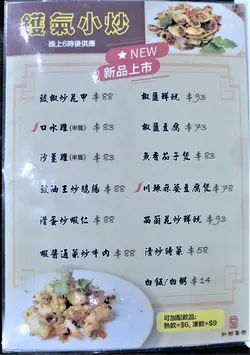 鑊氣小炒
晚上6時後供應
★NEW
新品上市
豉椒炒花甲 $88
口水雞(半隻) $83
沙薑雞(半隻) $83
豉油王炒鵝腸 $88
滑蛋炒蝦仁 $83
蝦醬通菜炒牛肉 $88
椒鹽鮮魷 $93
椒鹽豆腐 $73
魚香茄子煲 $83
川辣麻婆豆腐煲 $78
西蘭花炒鮮魷 $93
清炒時菜 $58
白飯/白粥 $14
可加配飲品:
熱飲+$6, 凍飲+$9